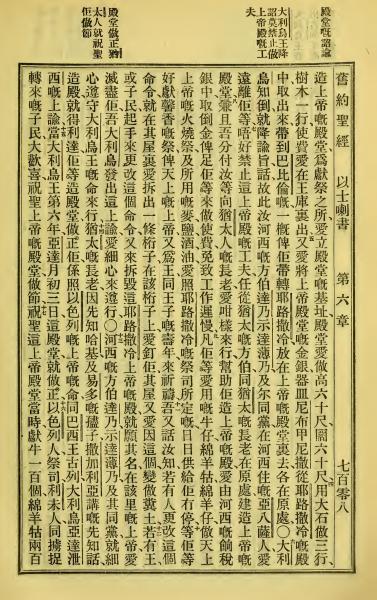 殿堂嘅詔諭
大利烏王降
詔莫禁止做
上帝殿嘅工
夫
殿堂做正猶
太人就祝聖
佢做節
舊約聖經 以士喇書 第六章 七百零八
造上帝嘅殿堂爲獻祭之所愛立殿嘅基址殿堂愛做高六十尺闊六十尺用大石做三行
樹木一行使費愛在王庫裏出又愛將上帝殿嘅金銀器皿尼布甲尼撒從耶路撒冷嘅殿
中取出來帶到巴比倫嘅一概俾佢帶轉耶路撒冷放在上帝嘅殿堂裏去各在原處〇大利
烏知倒就降諭旨話故此汝河西嘅方伯達乃示達薄乃及尔同黨在河西住嘅亞八薩人愛
遠離佢等唔好禁止這上帝殿嘅工夫任從猶太嘅方伯同猶太嘅長老在原處建造上帝嘅
殿堂兼且吾分付汝等向猶太人嘅長老愛咁樣來行幫助佢造上帝嘅殿堂愛由河西嘅餉稅
銀中取倒金俾足佢等來做使費免致工作遲慢凡佢等愛用嘅牛仔綿羊牯綿羊仔做天上
上帝嘅火燒祭及所用嘅麥鹽酒油愛照耶路撒冷嘅祭司所定嘅日日供給佢冇停等佢等
好獻馨香嘅祭俾天上嘅上帝又爲王同王子嘅壽年來祈禱吾又話汝知若有人更改這個
命令就在其屋裏愛拆出一條桁子在該桁子上愛釘佢其屋又愛因這個變做糞土若有王
或子民起手來更改這個命令又來拆毀這耶路撒冷上帝嘅殿就願其名在該里嘅上帝愛
滅盡佢吾大利烏發出這上諭愛細心來遵行〇河西嘅方伯達乃示達薄乃及其同黨就細
心遵守大利烏王嘅命來行猶太嘅長老因先知哈基及易多嘅孻子撒加利亞講嘅先知話
造殿就得利達佢等造殿堂做正佢係照以色列嘅上帝嘅命同巴西王古列大利烏亞達泄
西嘅上諭當大利烏王第六年亞達月初三日這殿堂就做正以色列人祭司利未人同擄捉
轉來嘅子民大歡喜祝聖上帝嘅殿堂做節祝聖這上帝殿堂當時獻牛一百個綿羊牯兩百